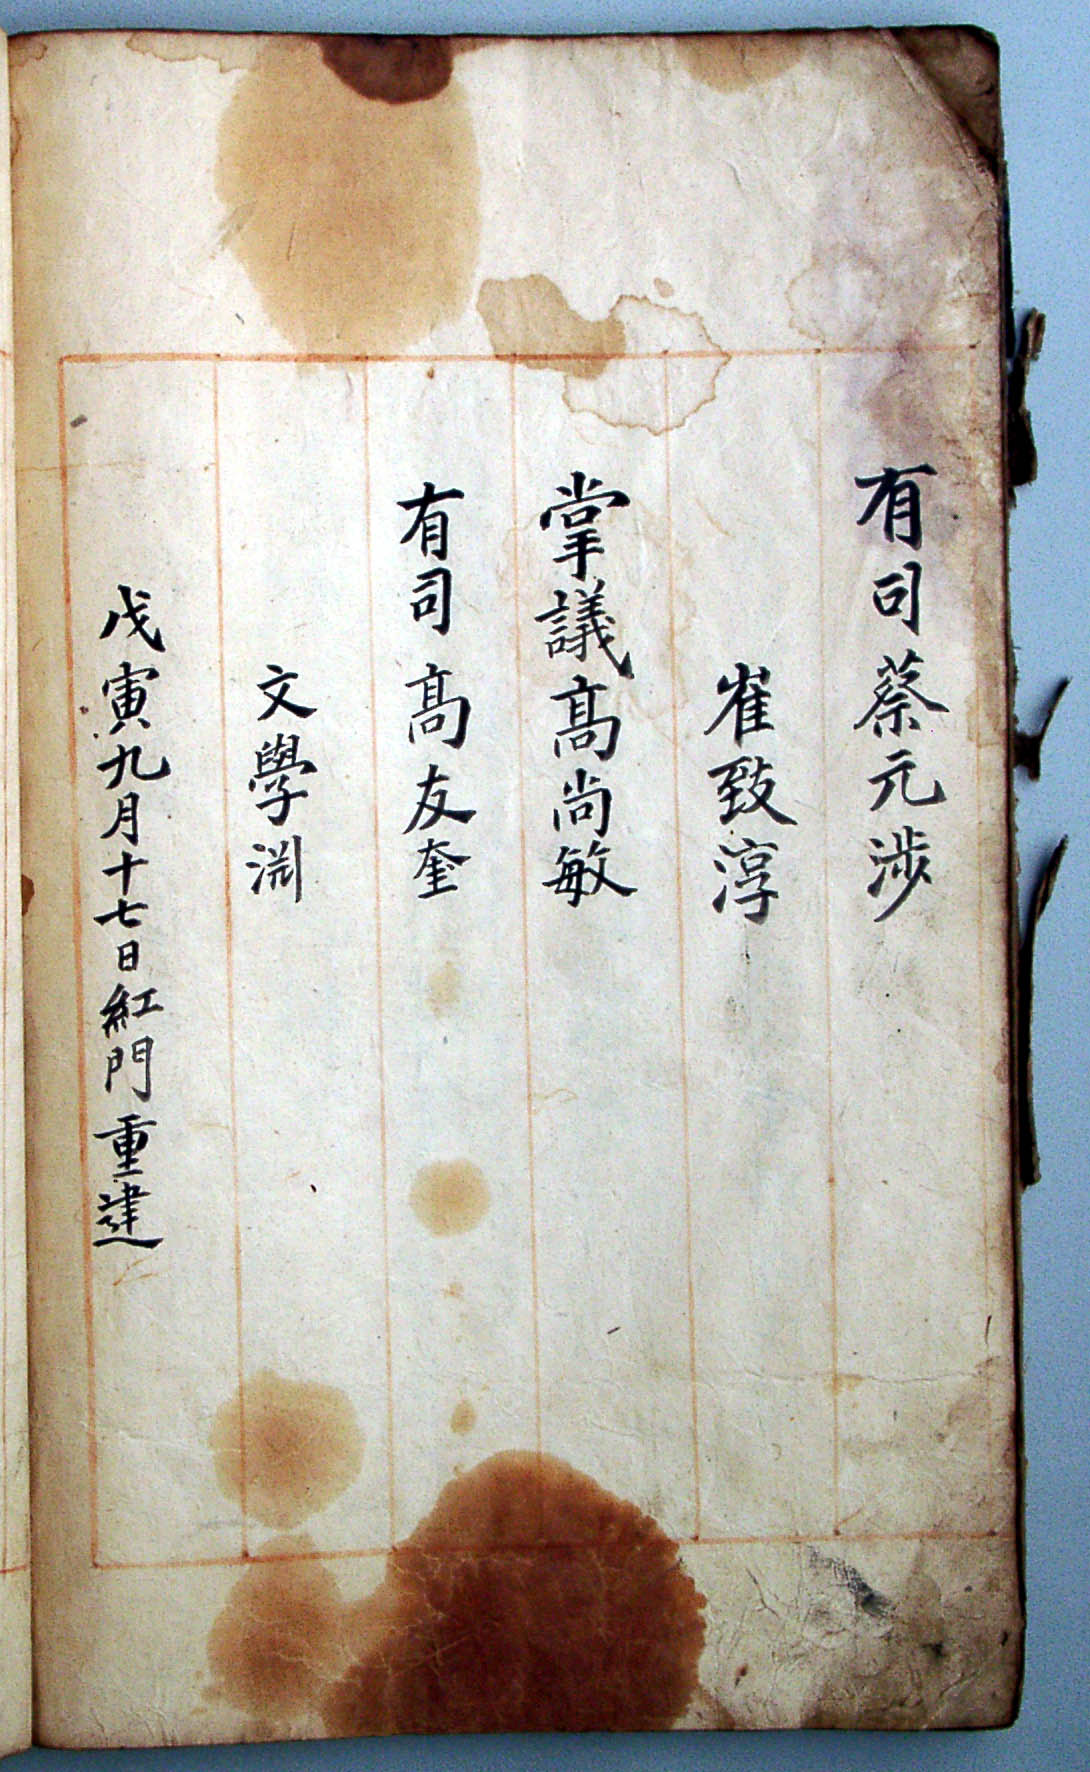 有司蔡元涉
崔致淳
掌議髙尚敏
有司髙友奎
文學渊
戊寅九月十七日紅門重建